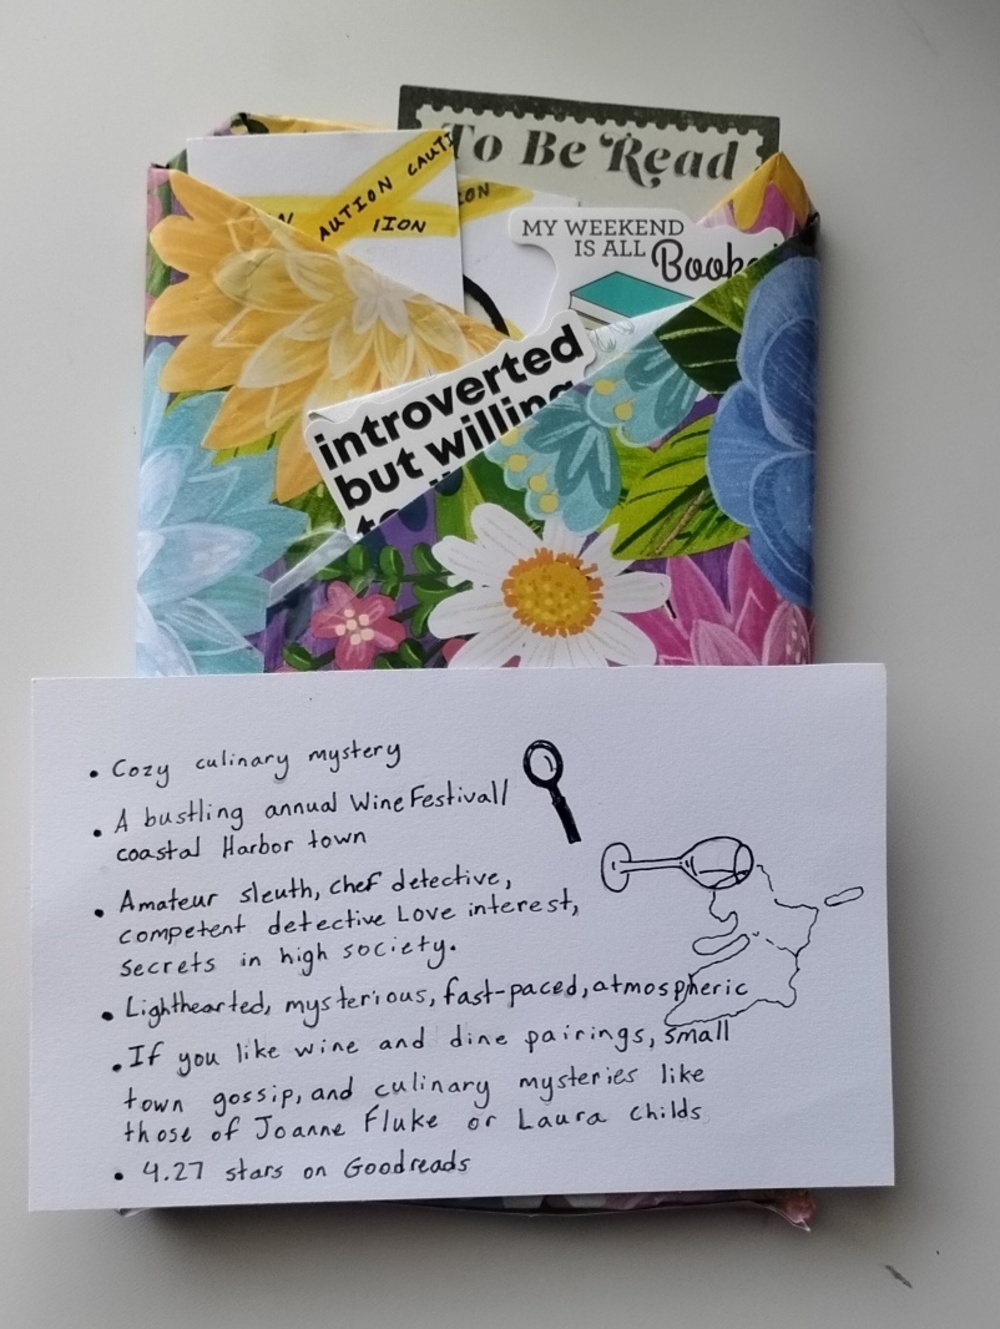 To Be Read
CAUTI
AUTION
ION
N
IION
MY WEEKEND
IS ALL
Books
introverted
but willing
to
• Cozy culinary mystery
• A bustling annual Wine Festival/
coastal Harbor town
• Amateur sleuth, chef detective,
competent detective Love interest,
secrets in high society.
• Lighthearted, mysterious, fast-paced, atmospheric
• If you like wine and dine pairings, small
town gossip, and culinary mysteries like
those of Joanne Fluke or Laura Childs
• 4.27 stars on Goodreads